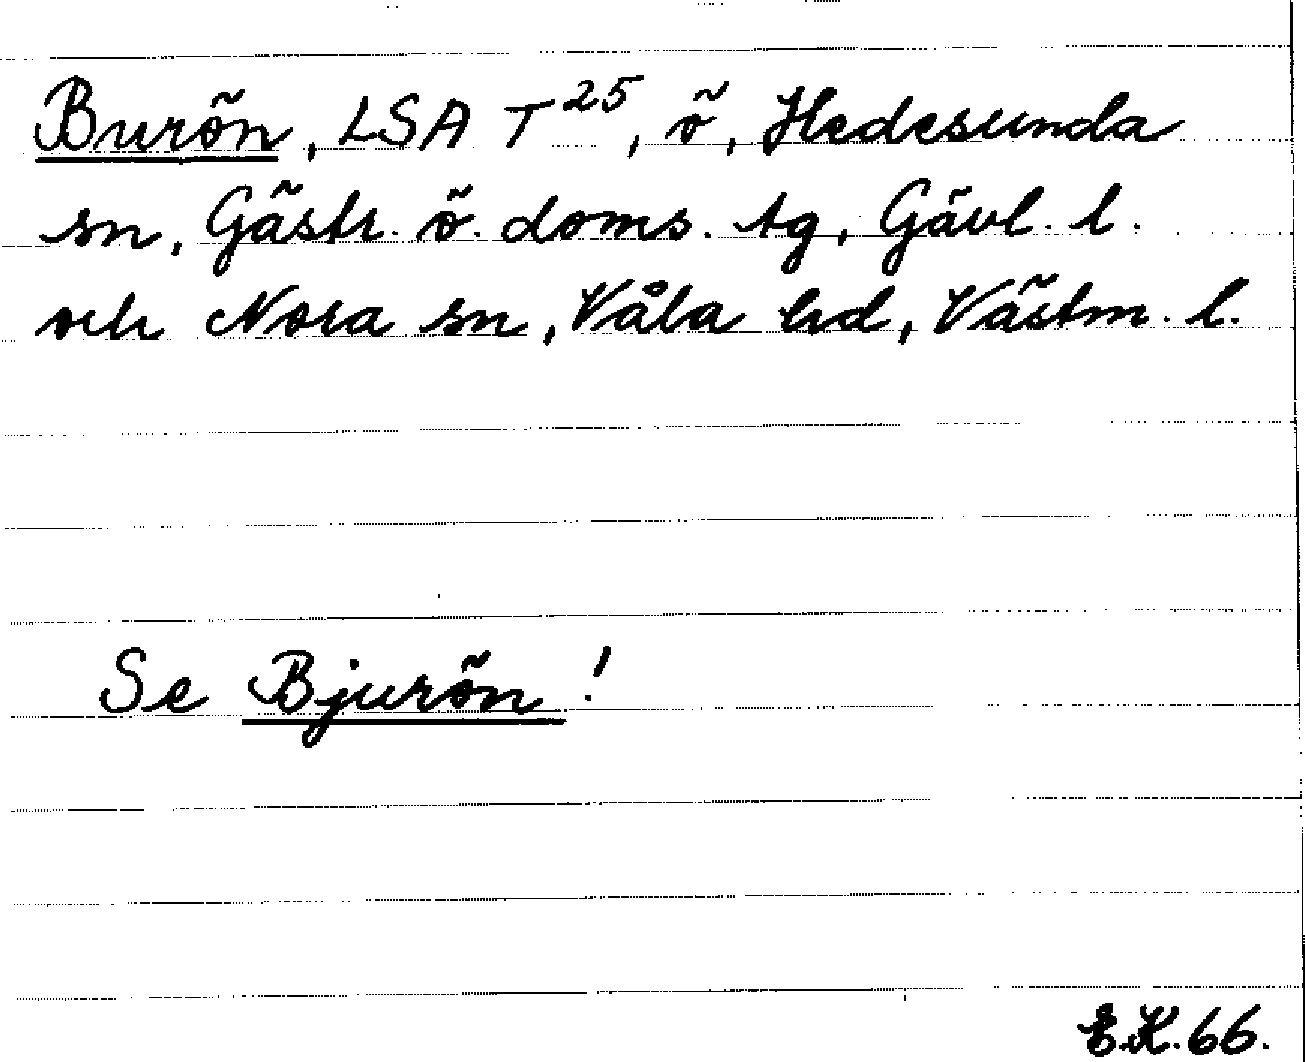 Burön, LSA T²⁵, ö, Hedesunda
sn, Gästr. ö. doms. tg, Gävl. l.
och Nora sn, Våla hd, Västm. l.
Se Bjurön!
E.K. 66.